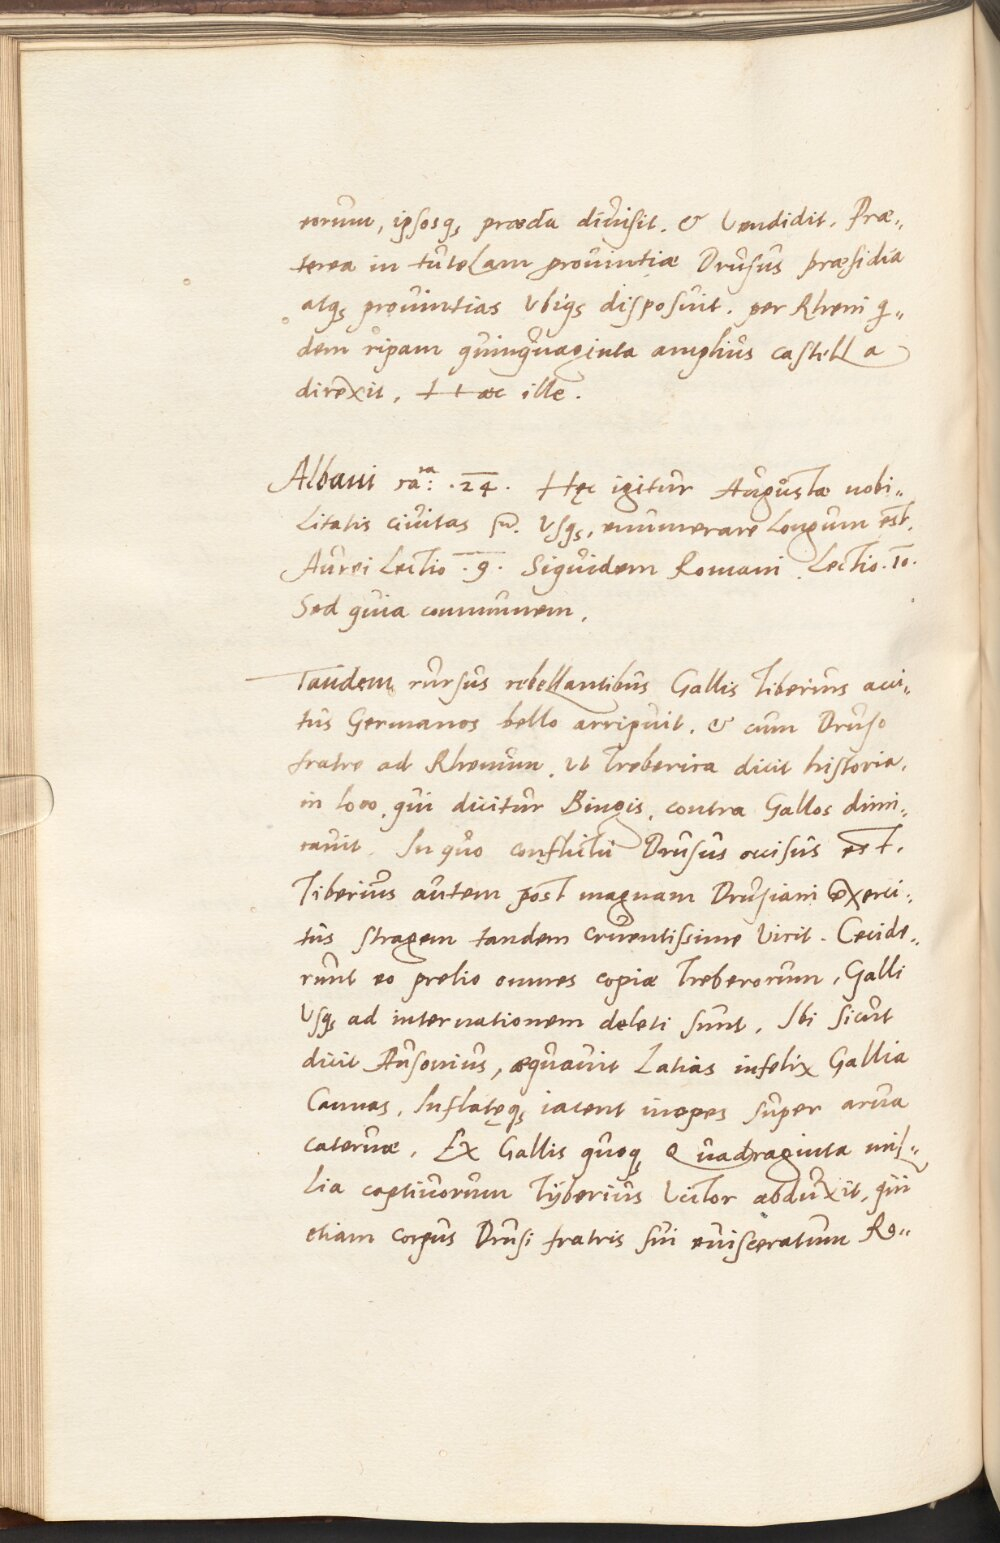 eorum, ipsosq₃ præda diuisit. & Vendidit. Præ„
terea in tutelam prouintiæ Drusus præsidia
atq₃ prouintias Vbiq₃ disposuit. per Rheni q̨„
dem ripam quinquaginta amplius castella
direxit, Hæc ille.
Albani ca:ra .24. Hęc igitur Augustæ nobi„
litatis ciuitas Vsq₃, enumerare longum est.
Aurei Lectio .9. Siquidem Romani. Lectio.10.
Sed quia communem.
Tandem rursus rebellantibus Gallis Tiberius acci„
tus Germanos bello arripuit. & cum Druso
fratre ad Rhenum, ut Treberica dicit historia,
in loco, qui dicitur Bingis, contra Gallos dimi„
cauit. In quo conflictu Drusus occisus est.
Tiberius autem post magnam Drusiani exerci„
tus stragem tandem cruentissime Vicit. Cecide„
runt eo prelio omnes copiæ Treberorum, Galli
Vsq₃ ad internationem deleti sunt. Ibi sicut
dicit Ausonius, æquauit Latias infelix Gallia
Cannas, Inflatęq₃ iacent inopes super arua
cateruæ. Ex Gallis quoq₃ Quadraginta mil„
lia captiuorum Tyberius Victor abduxit, qui
etiam corpus Drusi fratris sui euisceratum Ro„